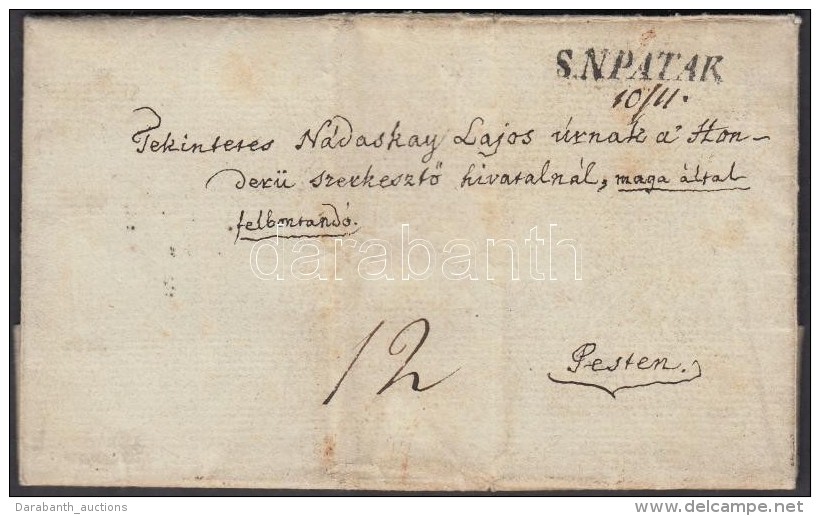 S.N.PATAK
10/11.
Tekintetes Nádaskay Lajos úrnak a' Hon-
derü szerkesztő hivatalnál, maga által
felbontandó.
darabanth
12
Pesten.
Darabanth_auctions
www.delcampe.net